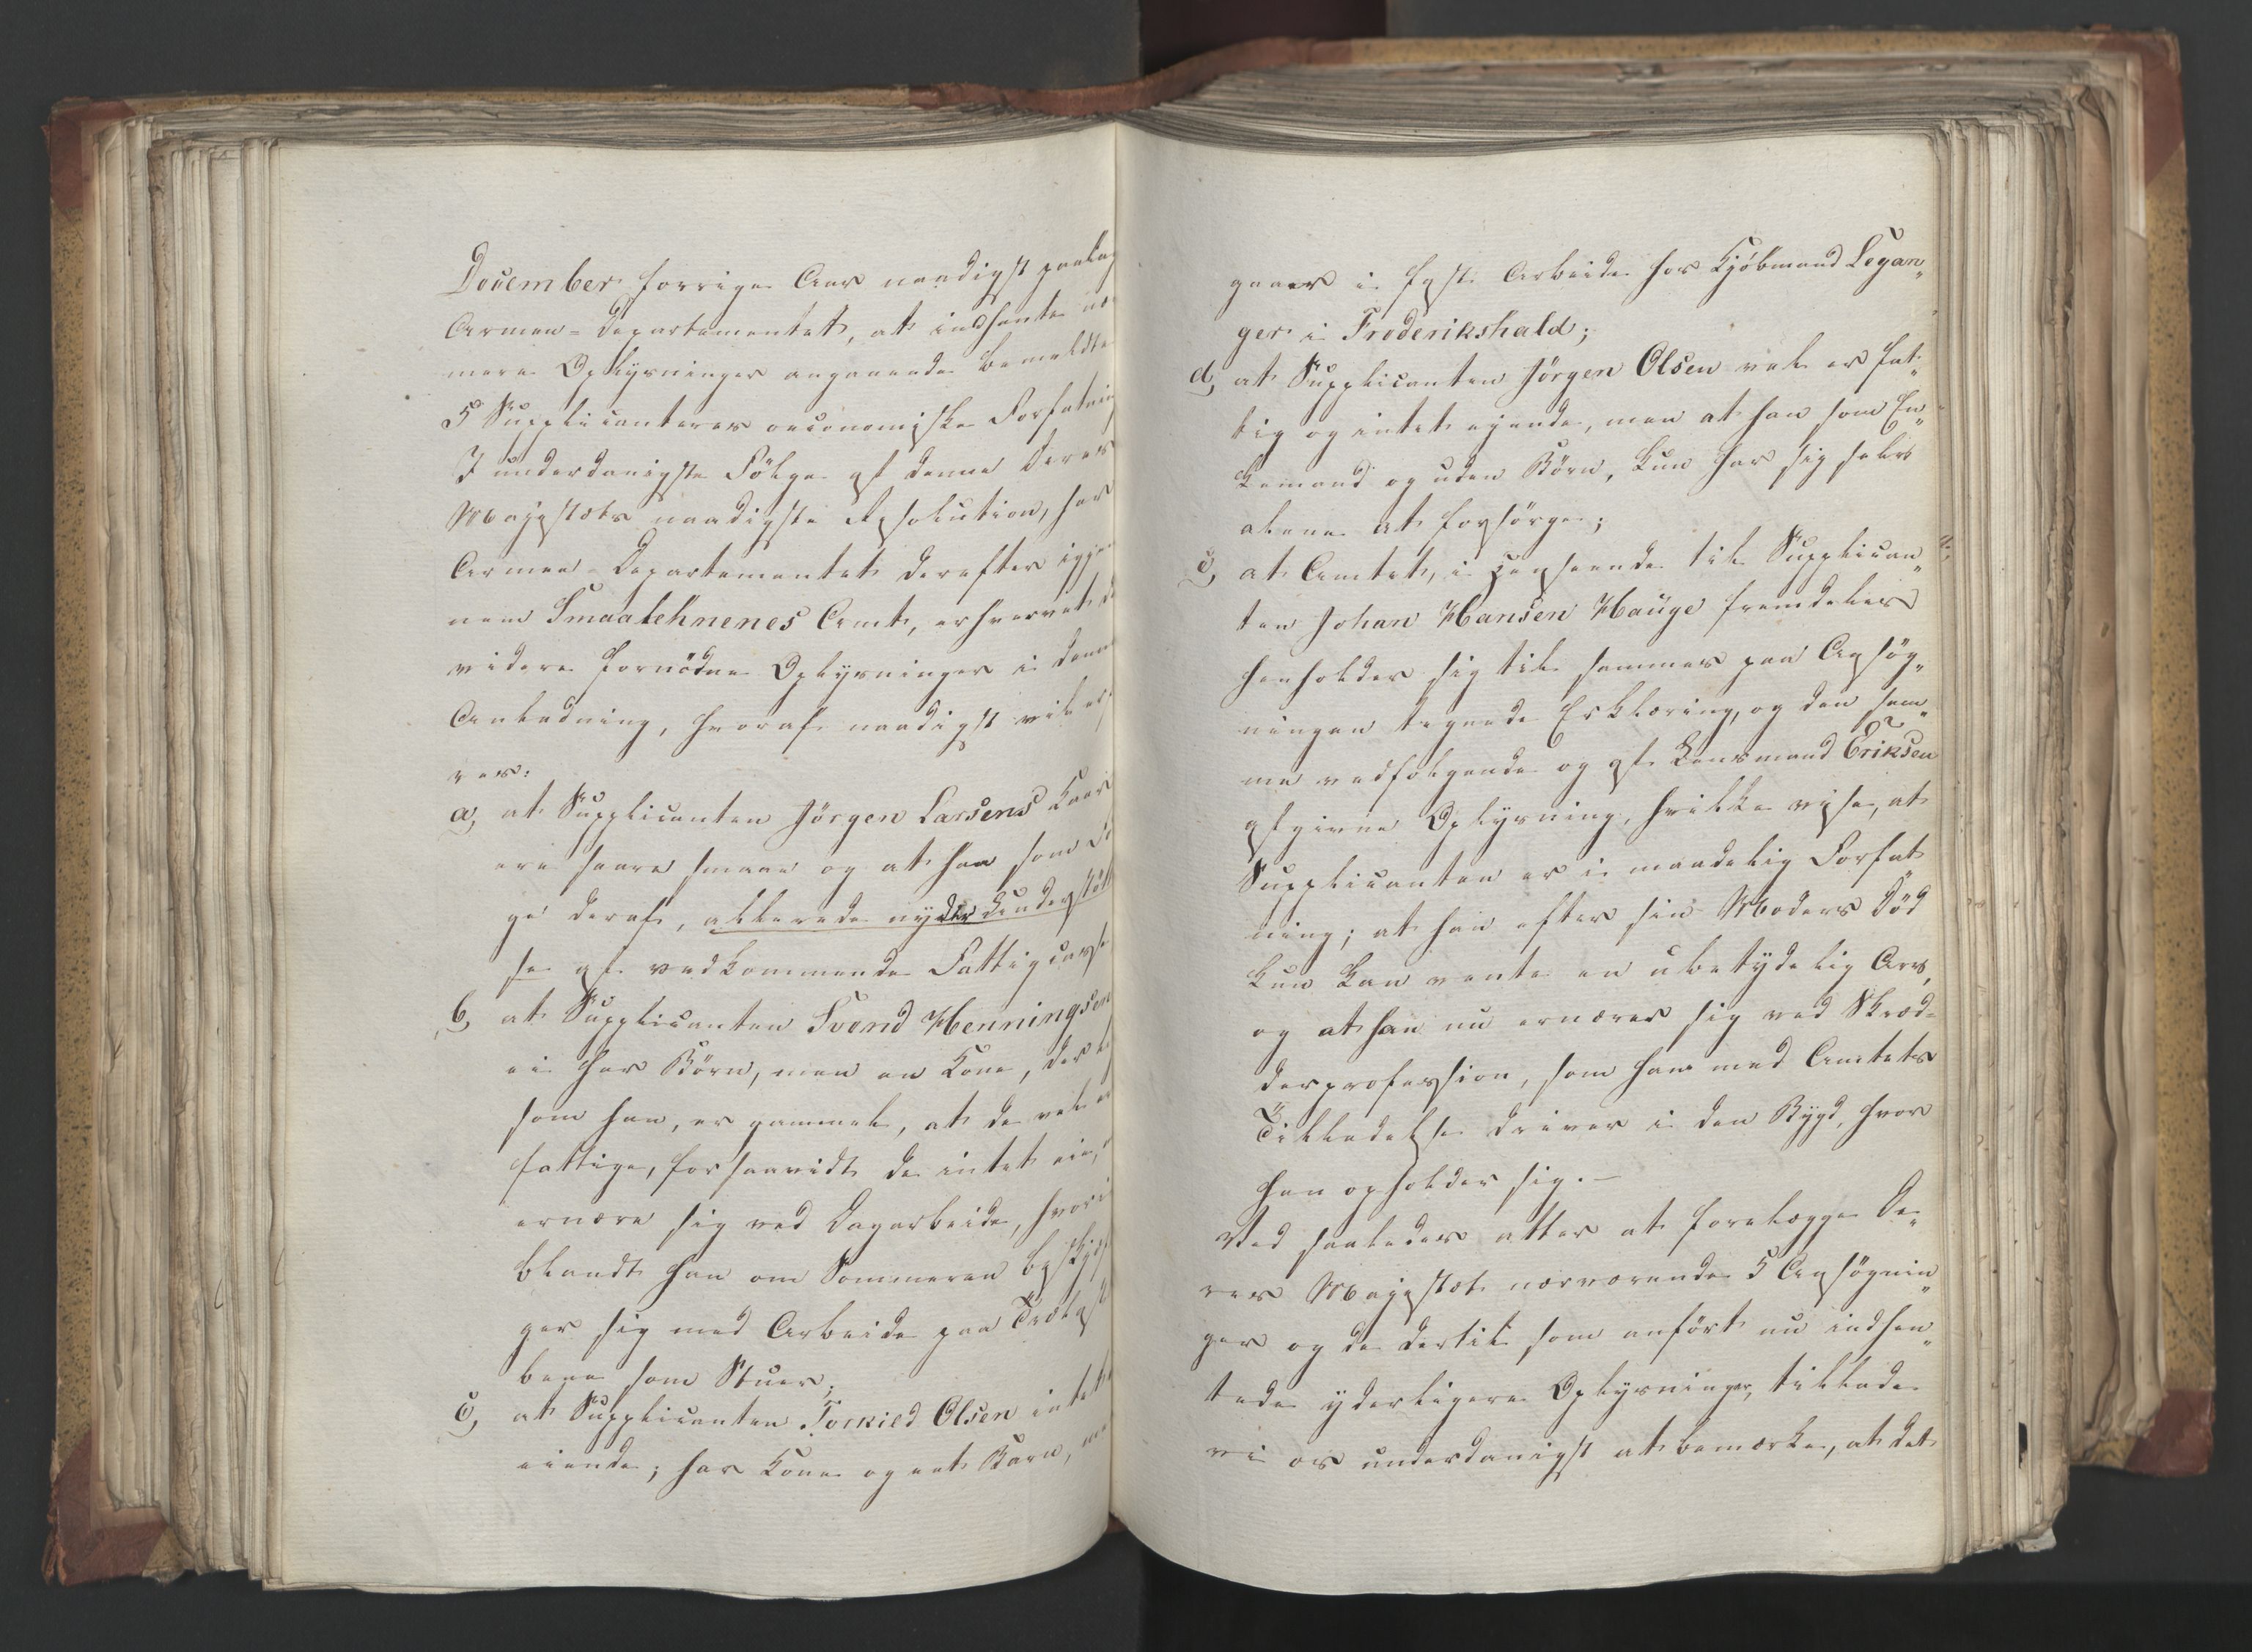 December forrige Aar naadigst paalag
Armee=Departementet, at indhente næ
mere Oplysninger angaaende bemeldte
5 Supplicanteres oeconomiske Forfatning
I underdanigste Fölge af denne Deres
Majestæts naadigste Resolution, har
Armee-Departementet derefter igjen
nem Smaalehnenes Amt, erhvervet de
videre fornödne Oplysninger i denne
Anledning, hvoraf naadigst vil er
res:
a, at Supplicanten Jörgen Larsens Kaar
ere saare smaae og at han som Fö
ge deraf, allerede nyder Understöttel
se af vedkommende Fattigcasse
b, at Supplicanten Svend Henningsen
ei har Börn, men en Kone, der li
som han, er gammel, at de vel er
fattige, forsaavidt de intet eie,
ernære sig ved Dagarbeide, hvori
blandt han om Sommeren beskjef
ger sig med Arbeide paa Trælast
bene som Stuer;
c, at Supplicanten Torkild Olsen intet
eiende; har Kone og eet Barn, men
gaaer i fast Arbeide hos Kjöbmand Legan„
ger i Frederikshald;
d, at Supplicanten Jörgen Olsen vel er fat„
tig og intet ejende, men at han som En„
kemand og uden Börn, kun har sig selv
alene at forsörge;
e, at Amtet, i Henseende til Supplican„
ten Johan Hansen Hauge fremdeles
henholder sig til sammes paa Ansög„
ningen tegnede Erklæring, og den sam„
me vedfölgende og af Lensmand Eriksen
afgivne Oplysning, hvilke vise, at
Supplicanten er i maadelig Forfat
ning; at han efter sin Moders Död
kun kan vente en ubetydelig Arv,
og at han nu ernærer sig ved Skræd=
derprofession, som han med Amtets
Tilladelse driver i den Bygd, hvor
han opholder sig.—
Ved saaledes atter at forelægge De„
res Majestæt nærværende 5 Ansögnin„
ger og de dertil som anfört nu indhen„
tede yderligere Oplysninger, tillade
vi os underdanigst at bemærke, at det